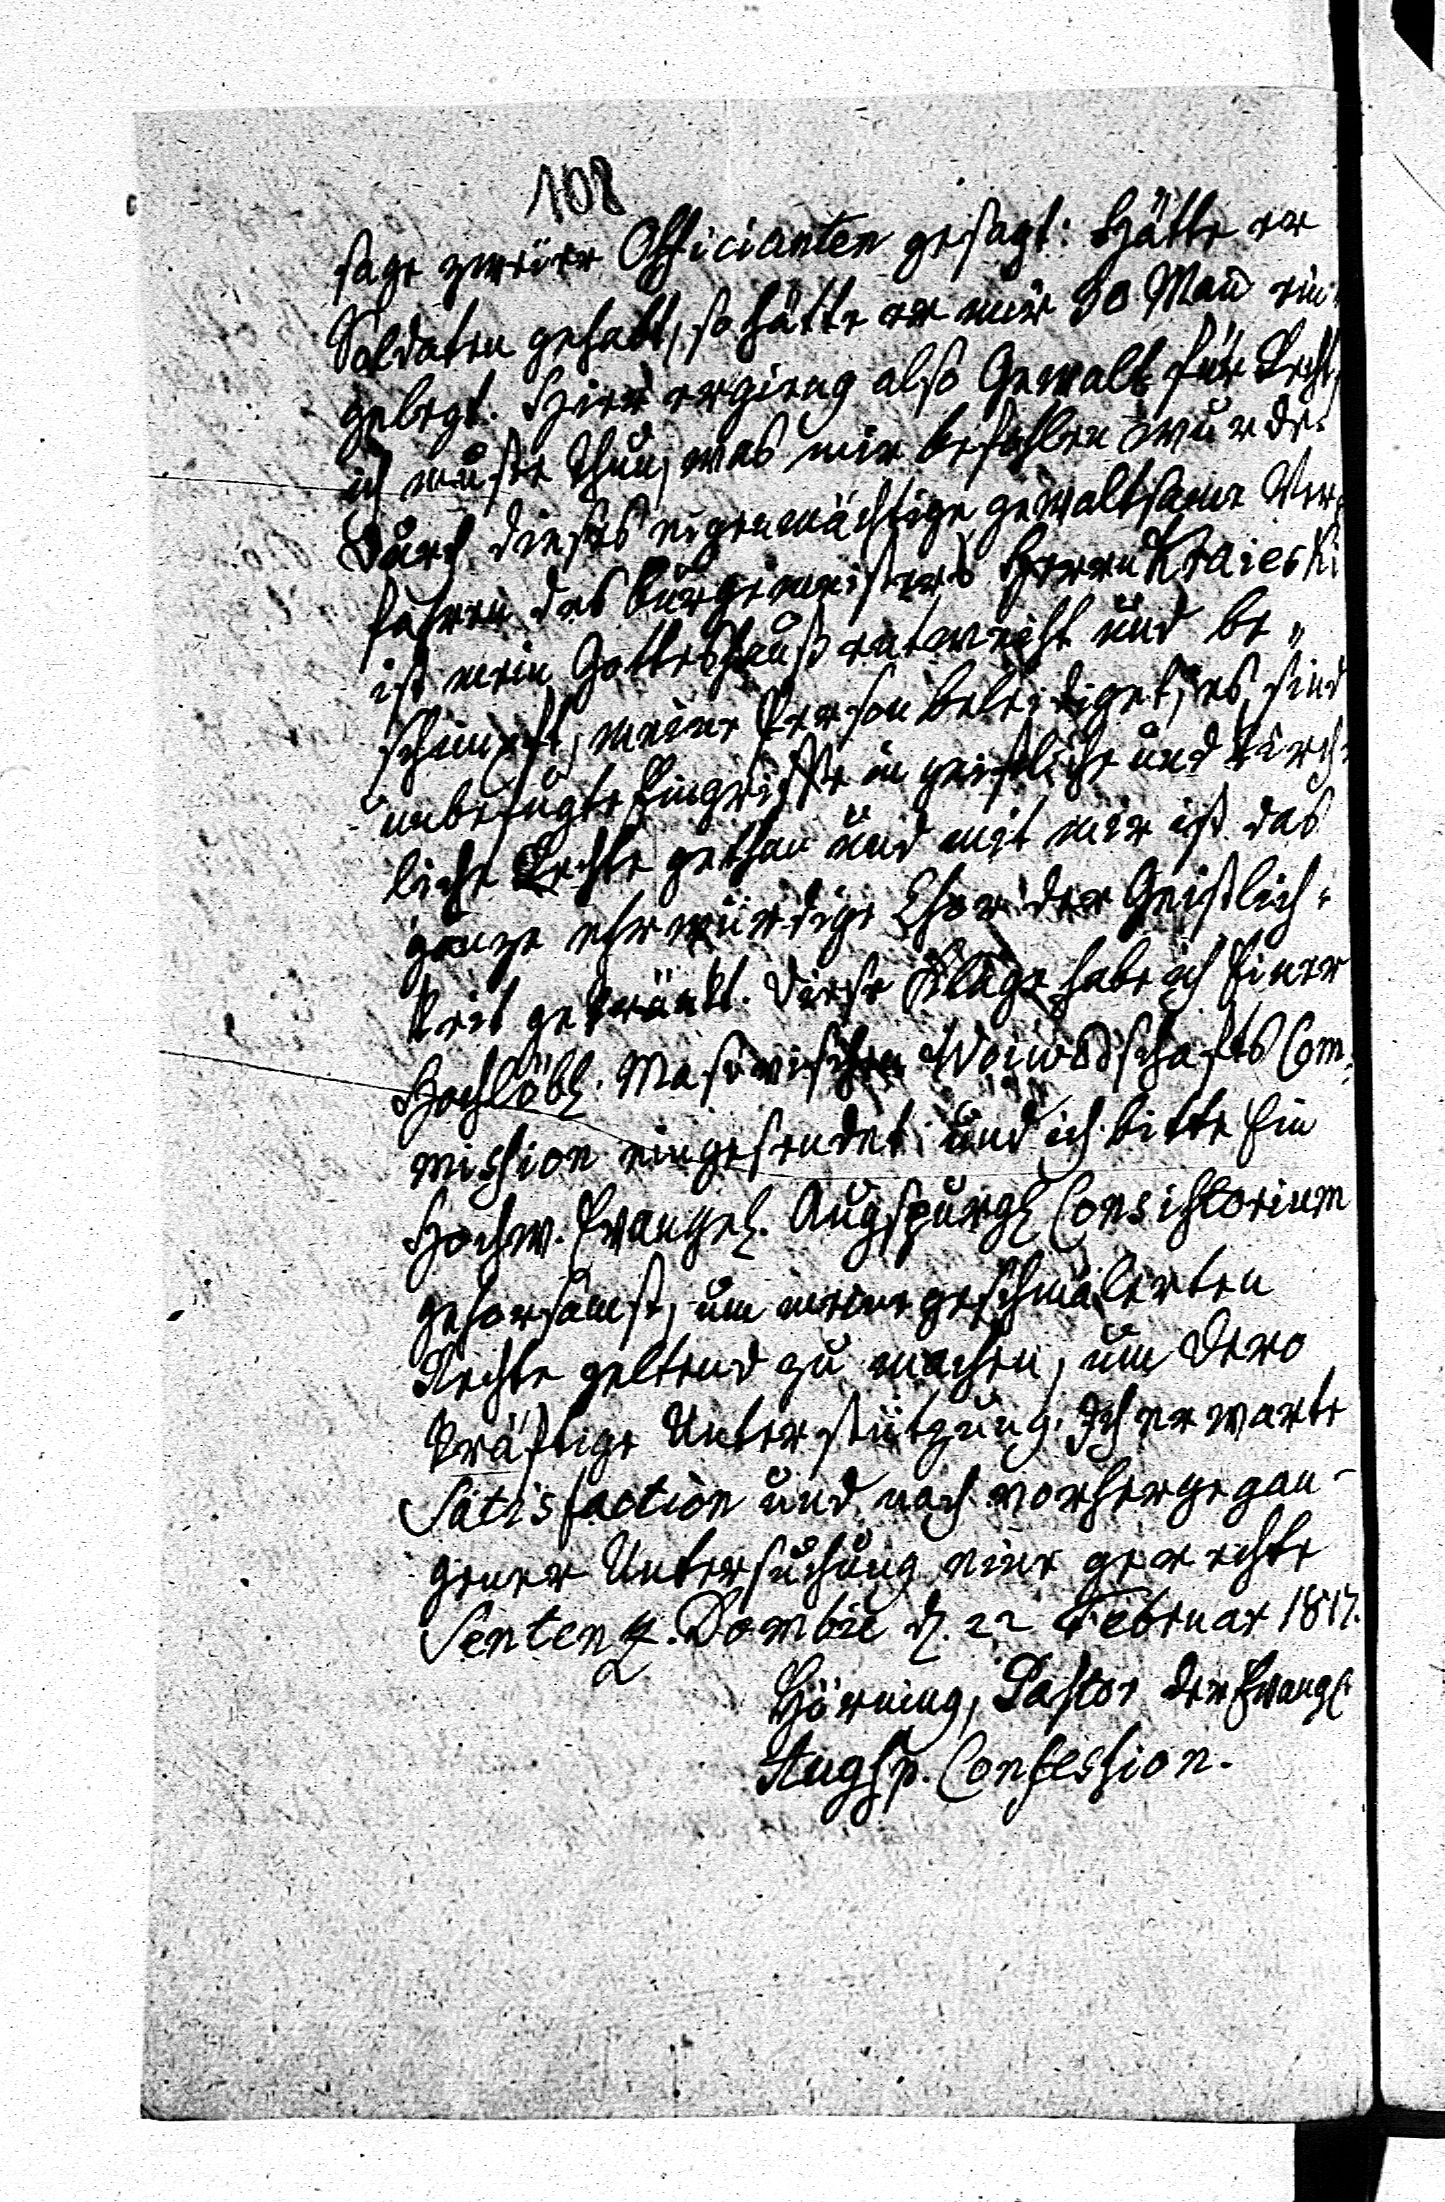 108
sage zweier Officianten gesagt: Hätte er
Soldaten gehabt, so hätte er mir 30 Man ein¬
gelegt. Hier ergieng also Gewalt für Recht,
ich muste thun, was mir befohlen wurde.
Durch dieses eigenmächtige gewaltsame Ver¬
fahren des Bürgemeisters Herrn Kraieski
ist mein Gotteshauß entweiht und be„
schimpft, meine Person beleidiget, es sind
unbefugte Eingriffe in geistliche und kirch¬
liche Rechte gethan und mit mir ist das
ganze ehrwürdige Chor der Geistlich¬
keit gekränkt. Diese Klage habe ich Einer
Hochlöbl. Masovischen Woiwodschafts Com¬
mission eingesendet und ich bitte Ein
Hochw. Evangel. Augspurgl Consistorium
gehorsamst, um meine geschmälerten
Rechte geltend zu machen, um Dero
kräftige Unterstützung. Ich erwarte
Satisfaction und nach vorhergegan-
gener Untersuchung eine gerechte
Sentenz. Dombie d. 22 Februar 1817.
Hörning, Pastor der Evangl
Augsp. Confession.